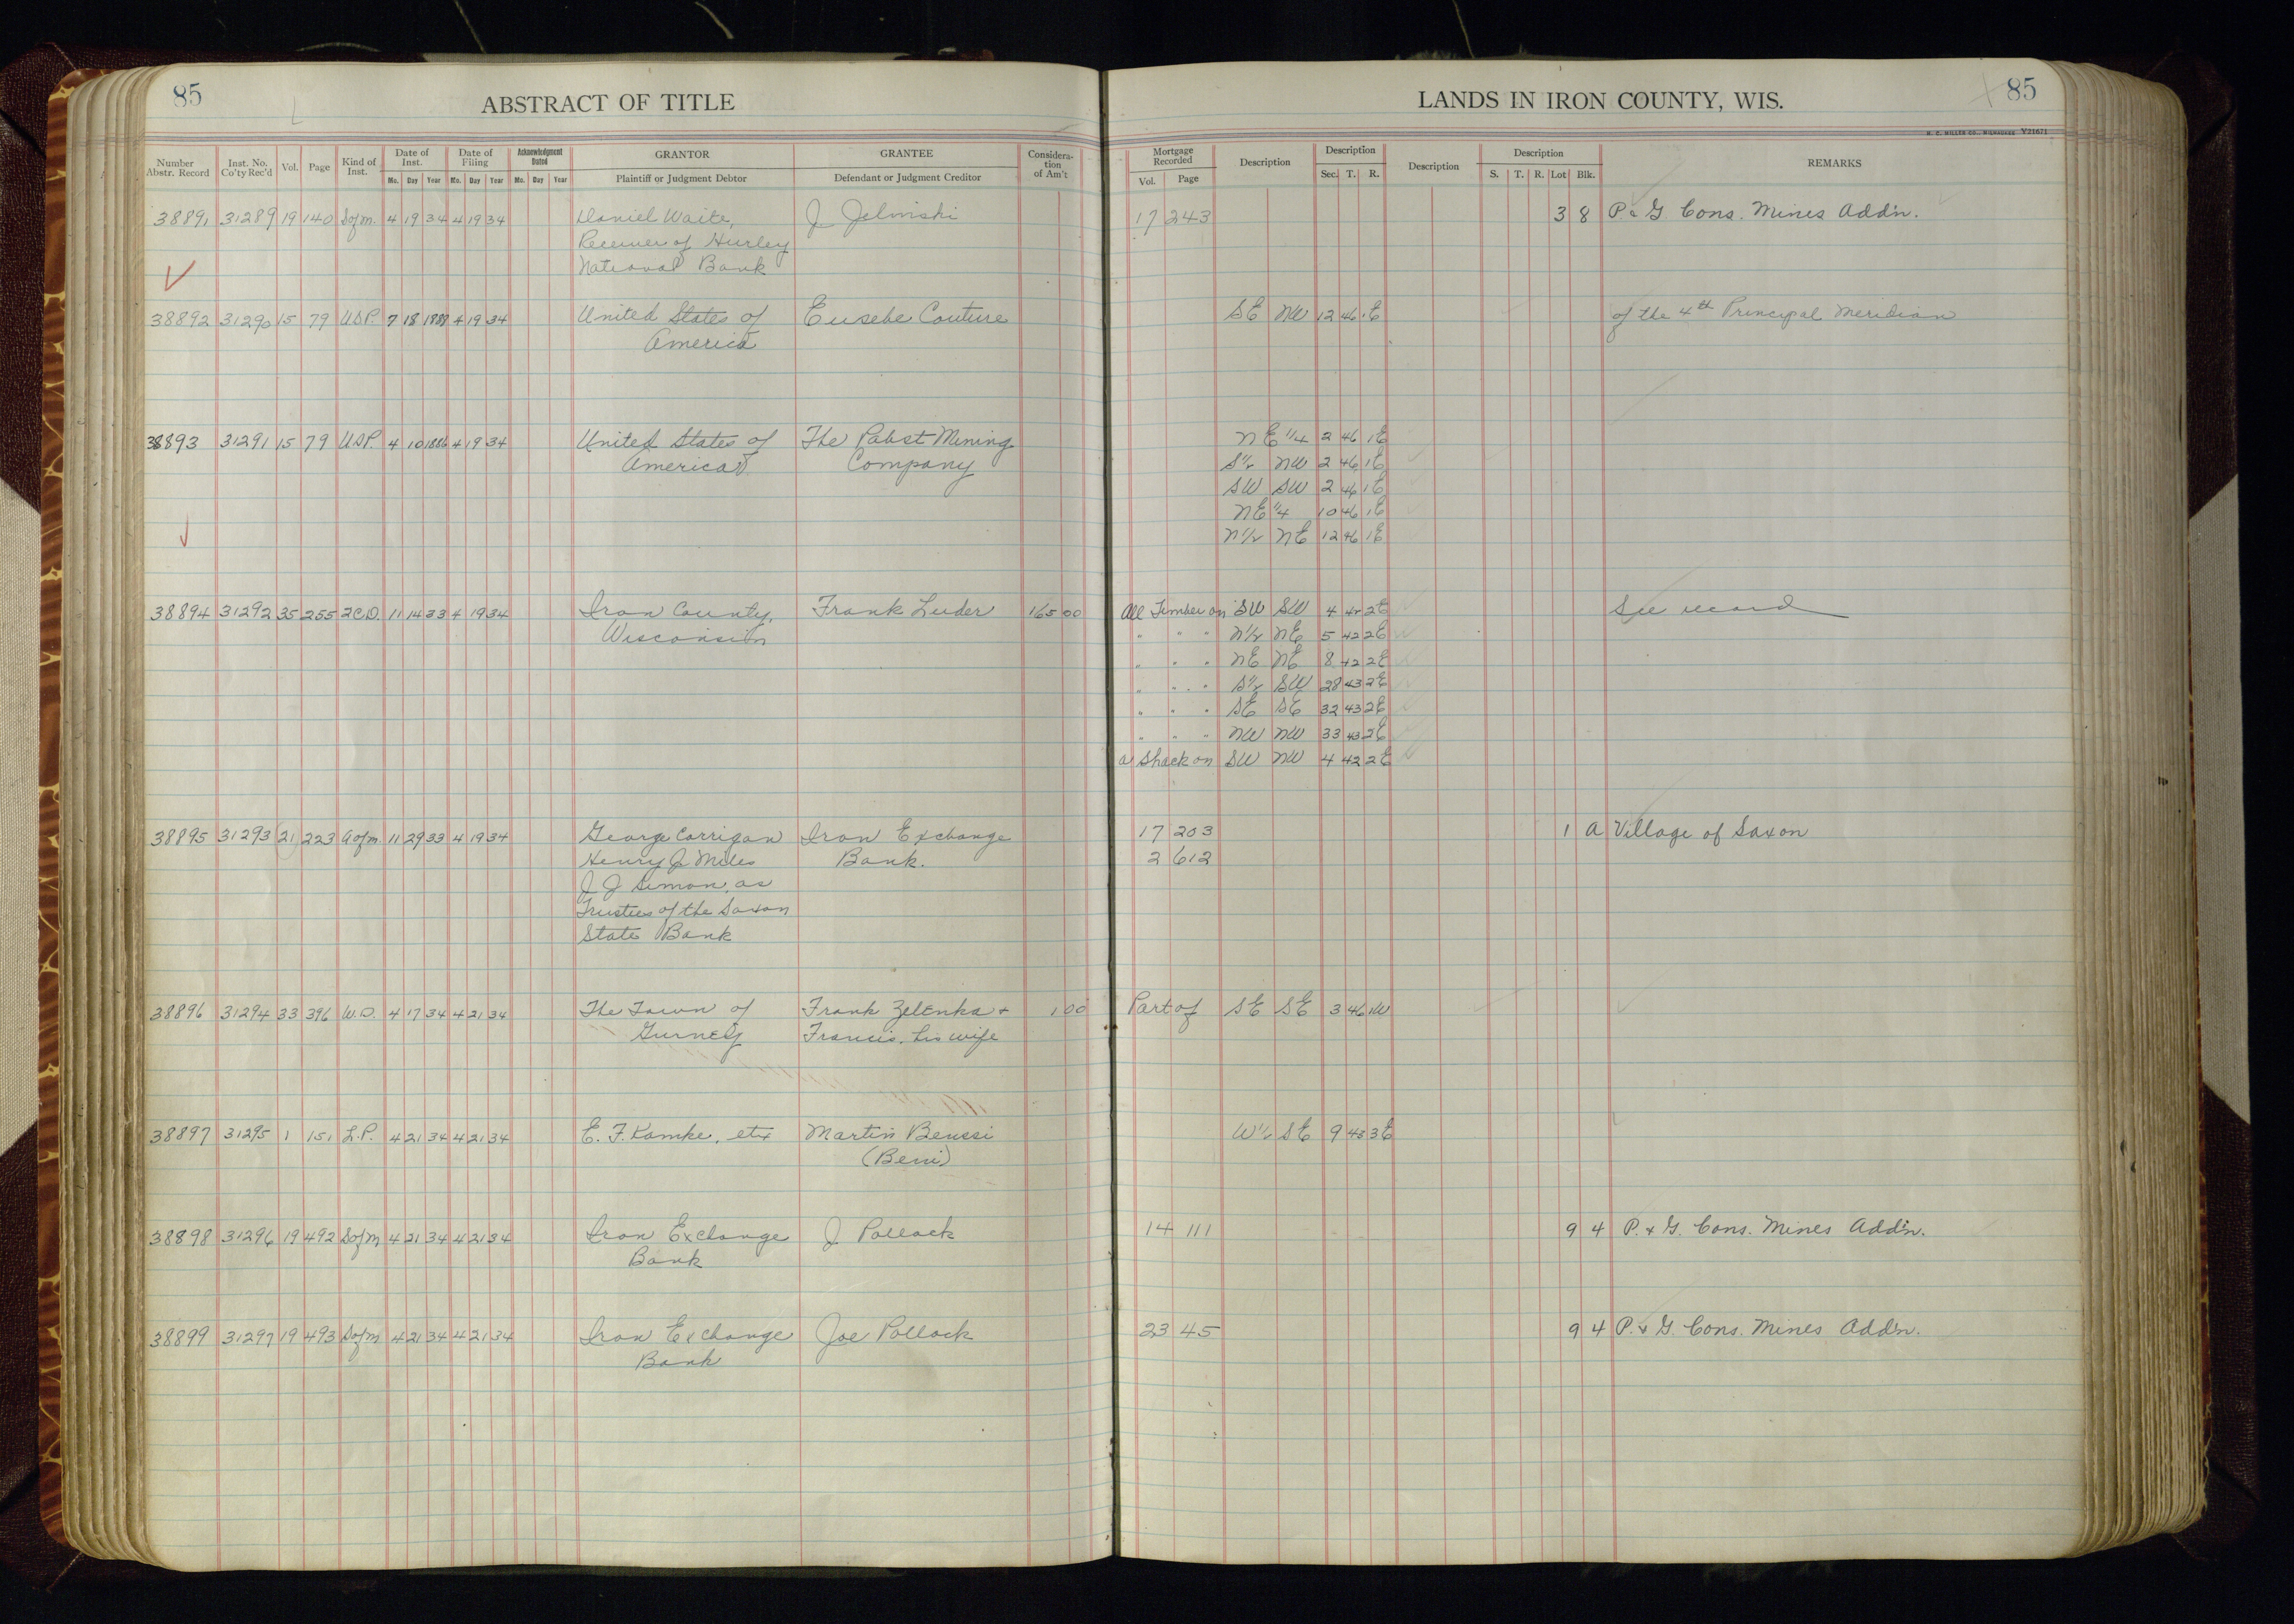 85
ABSTRACT OF TITLE
LANDS IN IRON COUNTY, WIS.
85
H. C. MILLER CO., MILWAUKEE V21671
Number Abstr. Record | Inst. No. Co'ty Rec'd | Vol. | Page | Kind of Inst. | Date of Inst. Mo. Day Year | Date of Filing Mo. Day Year | Acknowledgment Dated Mo. Day Year | GRANTOR Plaintiff or Judgment Debtor | GRANTEE Defendant or Judgment Creditor | Consideration of Am't | Mortgage Recorded Vol. Page | Description | Description Sec. T. R. | Description | Description S. T. R. Lot Blk. | REMARKS
38891 31289 19 140 Sofm. 4 19 34 4 19 34 Daniel Waite, J Jelinski 17 243 3 8 P. & G. Cons. Mines Add'n.
Receiver of Hurley
National Bank
38892 31290 15 79 U.S.P. 7 18 1889 4 19 34 United States of Eusebe Couture SE NW 12 46 1E of the 4th Principal Meridian
America
38893 31291 15 79 U.S.P. 4 10 1886 4 19 34 United States of The Pabst Mining NE 1/4 2 46 1E
America Company S 1/2 NW 2 46 1E
SW SW 2 46 1E
NE 1/4 10 46 1E
N 1/2 NE 12 46 1E
38894 31292 35 255 2C.D. 11 14 33 4 19 34 Iron County, Frank Luder 165 00 All Timber on SW SW 4 42 2E See record
Wisconsin " " " N 1/2 NE 5 42 2E
" " " NE NE 8 42 2E
" " " S 1/2 SW 28 43 2E
" " " SE SE 32 43 2E
" " " NW NW 33 43 2E
a Shack on SW NW 4 42 2E
38895 31293 21 223 Aofm. 11 29 33 4 19 34 George Corrigan Iron Exchange 17 203 1 A Village of Saxon
Henry J Miles Bank. 2 612
J J Simon, as
Trustees of the Saxon
State Bank
38896 31294 33 396 W.D. 4 17 34 4 21 34 The Town of Frank Zelenka + 1 00 Part of SE SE 3 46 1W
Gurney Francis, his wife
38897 31295 1 151 L.P. 4 21 34 4 21 34 E. F. Kamke, etux Martin Benssi W 1/2 SE 9 43 3E
38898 31296 19 492 Sofm 4 21 34 4 21 34 Iron Exchange J Pollack 14 111 9 4 P. & G. Cons. Mines Add'n.
Bank
38899 31297 19 493 Sofm 4 21 34 4 21 34 Iron Exchange Joe Pollack 23 45 9 4 P. & G. Cons. Mines Add'n.
Bank